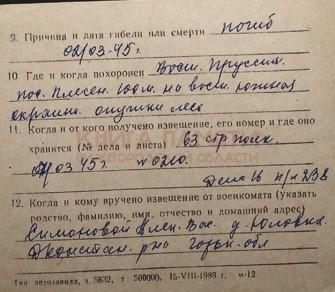 9. Причина и дата гибели или смерти погиб
02/03-45г
10. Где и когда похоронен Вост. Пруссия
пос. Плесен 100м. на вост. южная
окраина опушки леса
11. Когда и от кого получено извещение, его номер и где оно
хранится (№ дела и листа) 63 стр полк
02/03 45г № 0210.
Дело 16 п/п 238
12. Когда и кому вручено извещение от военкомата (указать
родство, фамилию, имя, отчество и домашний адрес)
Симоновой Елен. Вас. д. Юловка
р-на Горьк. обл
Тип. автозавода, з. 5832, т. 500000. 15-VIII-1989 г. м-12
КНИГА ПАМЯТИ
ОБЛАСТИ